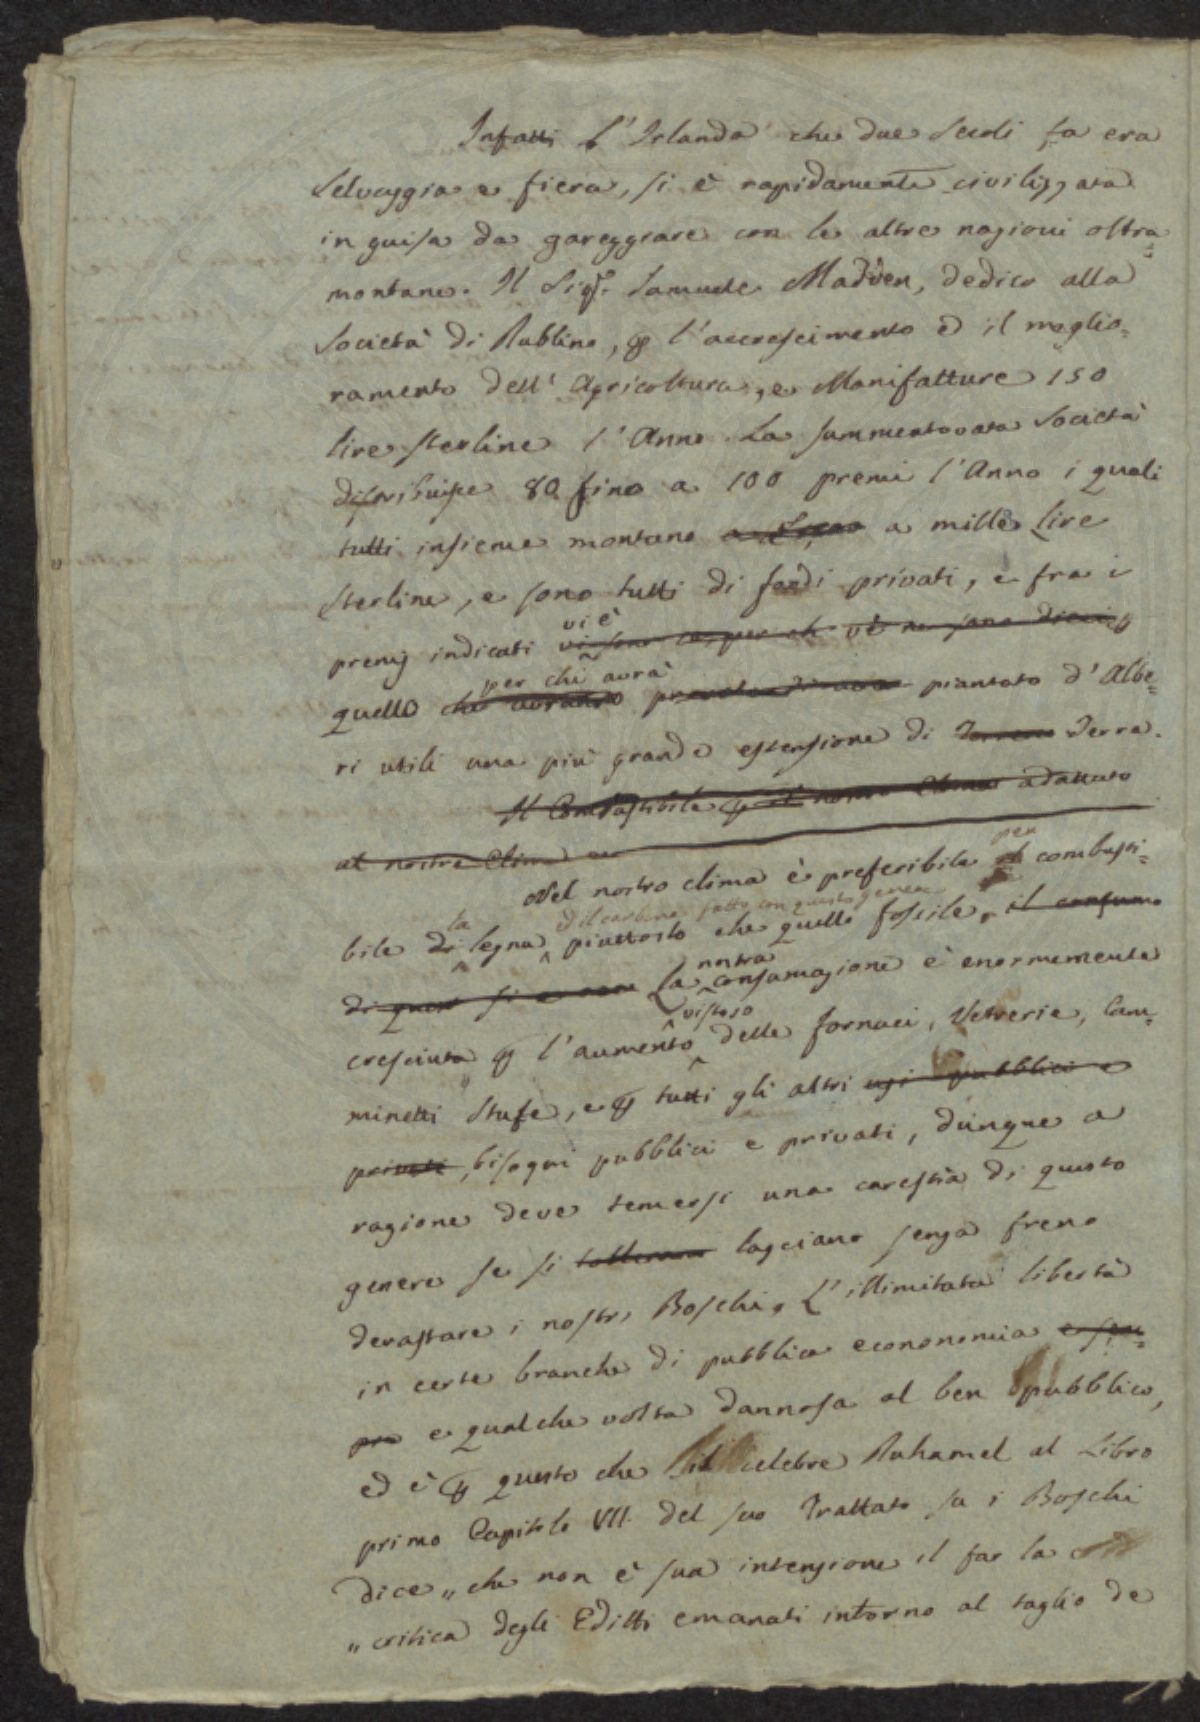 Infatti l'Irlanda che due Secoli fa era
Selvaggia e fiera, si è rapidamente civilizzata
in guisa da gareggiare con le altre nazioni oltra=
montane. Il Sigr. Samuele Madden, dedico alla
Società di Dublino, p l'accrescimento e il meglio=
ramento dell'Agricoltura, e Manifatture 150
lire sterline l'Anno. La summentovata Società
distribuisce 80 fino a 100 premi l'Anno i quali
tutti insieme montano a mille Lire
Sterline, e sono tutti di fondi privati, e fra i
vi è
premj indicati
per chi avrà
quello che piantato d'Albe=
ri utili una più grande estensione di Terreno Terra.
Il Combustibile p il nostro Clima adattato
al nostro Clima
per
Nel nostro clima è preferibile combusti=
la ed il carbone fatto con questo genere
bile di legna piuttosto che quello fossile, il consumo
nostra
di questo si La consumazione è enormemente
vistoso
cresciuta p l'aumento delle fornaci, Vetrerie, Cam=
minetti Stufe, e p tutti gli altri usi pubblici e
privati, bisogni pubblici e privati, dunque a
ragione deve temersi una carestia di questo
genere se si lasciano senza freno
devastare i nostri Boschi, L'illimitata libertà
in certe branche di pubblica econonomia e sem=
pre e qualche volta dannosa al ben pubblico,
ed è p questo che il celebre Duhamel al Libro
primo Capitolo VII. del suo Trattato su i Boschi
dice „ che non è sua intenzione il far la
„ critica degli Editti emanati intorno al taglio de